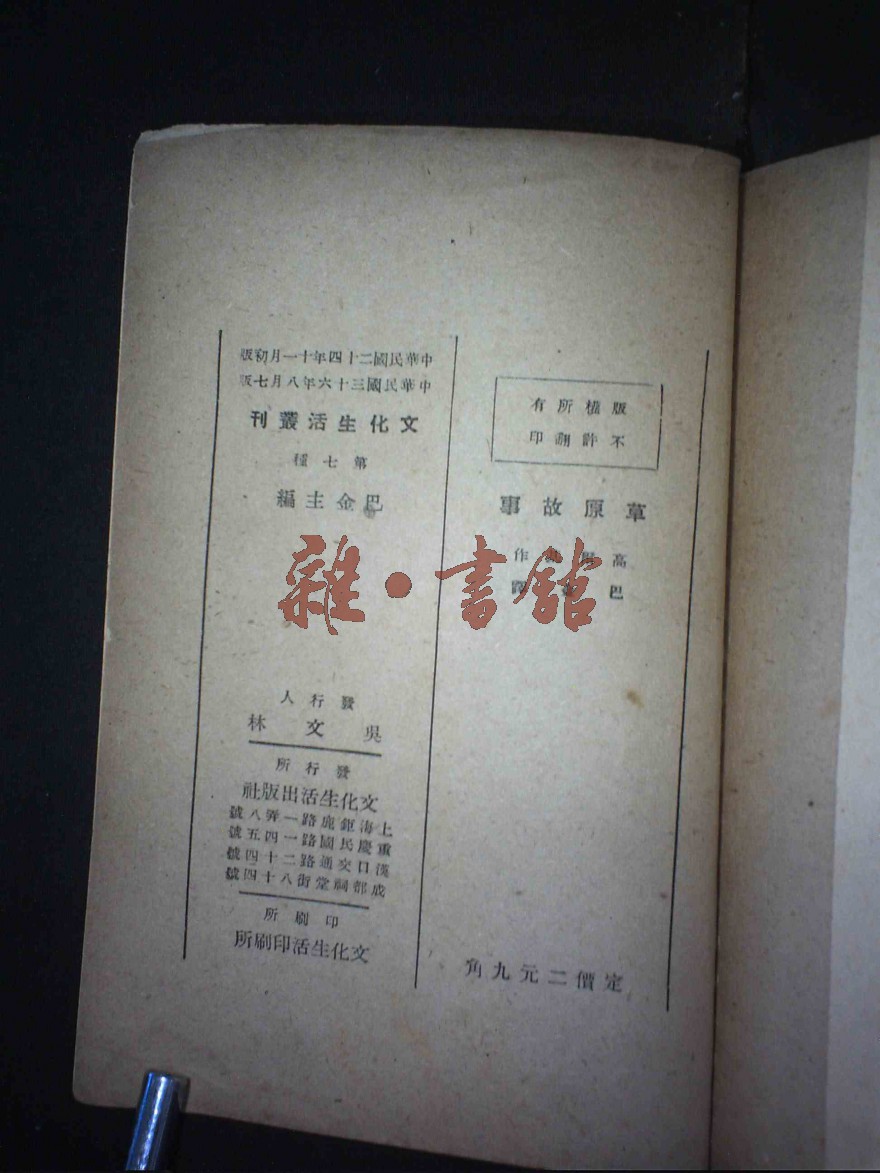 版權所有
不許翻印
草原故事
高爾基作
巴金譯
定價二元九角
中華民國二十四年十一月初版
中華民國三十六年八月七版
文化生活叢刊
第七種
巴金主編
發行人
吳文林
發行所
文化生活出版社
上海鉅鹿路一弄八號
重慶民國路一四五號
漢口交通路二十四號
成都祠堂街八十四號
印刷所
文化生活印刷所
雜·書館